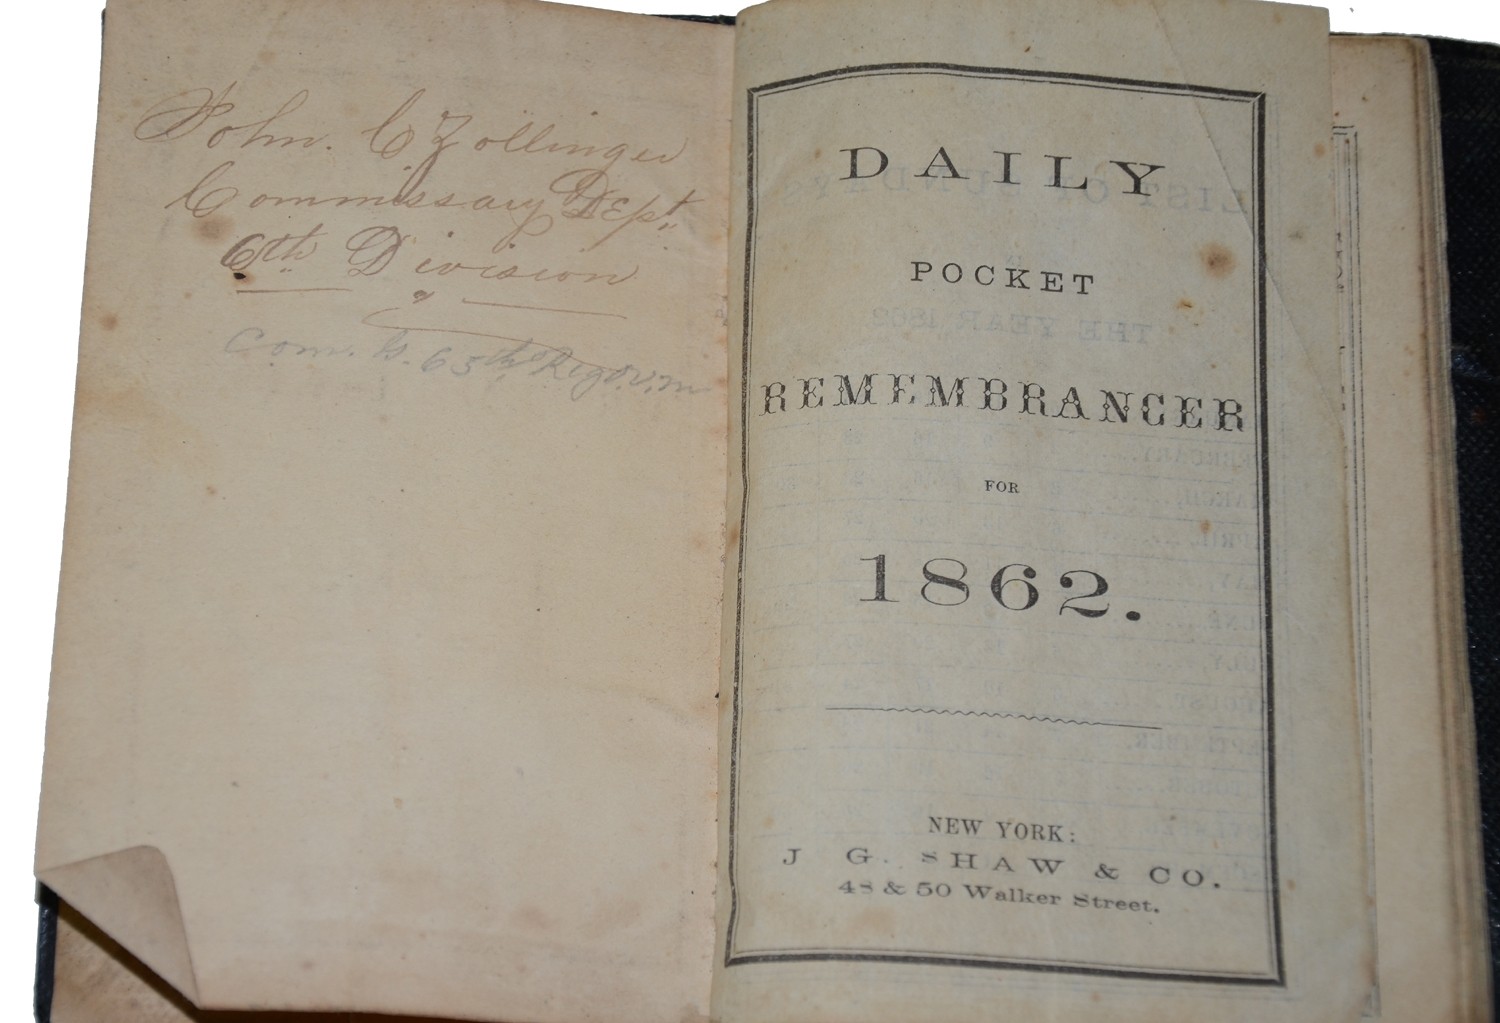 John. C Zollinger
Commissary Dept.
6th Division
Com. G. 65th Reg O.V.M
DAILY
POCKET
REMEMBRANCER
FOR
1862.
NEW YORK:
J G. SHAW & CO.
48 & 50 Walker Street.
LIST OF SUNDAYS
THE YEAR 1862